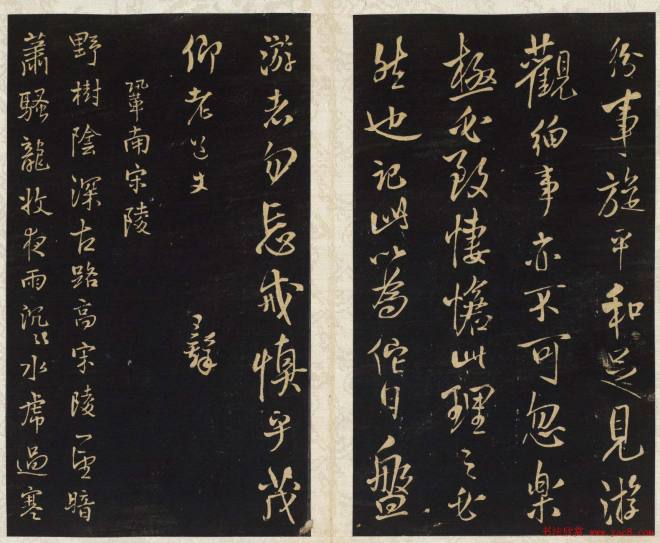 分事旋平和足见游
觀細事亦不可忽樂
極必致悽愴此理之必
然也記此以為佗日盤
游者勿忘戒慎乎茂
卿老
鞏南宋陵
野樹陰深古路高宋陵一望暗
蕭騷龍收夜雨沉沉水虎過寒
书法欣赏